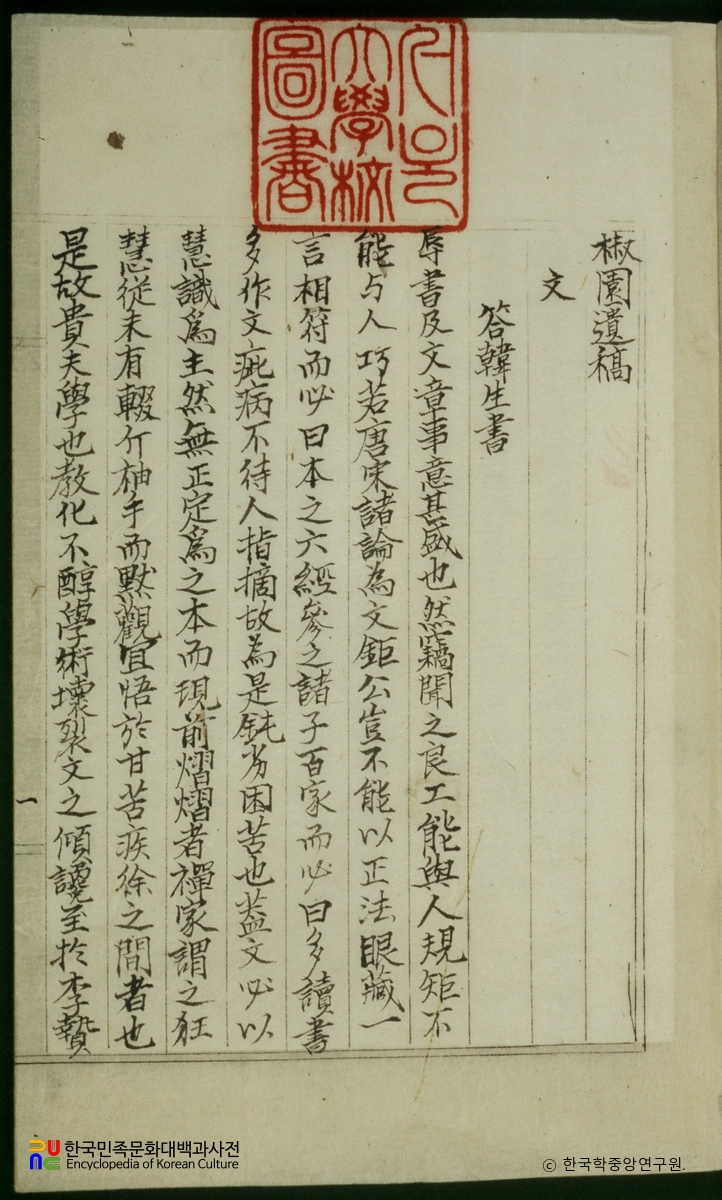 서울
大學校
圖書
椒園遺稿
文
答韓生書
辱書及文章事意甚盛也然竊聞之良工能與人規矩不
能与人巧若唐宋諸論為文鉅公豈不能以正法眼藏一
言相符而必曰本之六經參之諸子百家而必曰多讀書
多作文疵病不待人指摘故為是鈍劣困苦也盖文必以
慧識爲主然無正定爲之本而現前熠熠者禪家謂之狂
慧從未有輟斤袖手而默觀冝悟於甘苦疾徐之間者也
是故貴夫學也教化不醇學術壞裂文之傾讒至於李贄
一
한국민족문화대백과사전
Encyclopedia of Korean Culture
ⓒ 한국학중앙연구원.